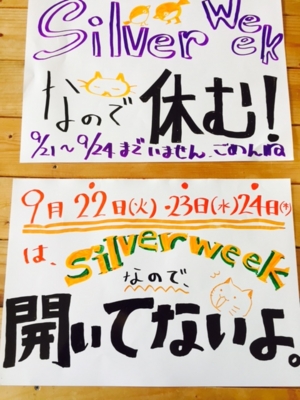 Silver Week
なので 休む!
9/21~9/24 まで いません、ごめんね
9月22日(火)・23日(水)24日(木)
は、Silver week
なので、
開いてないよ。